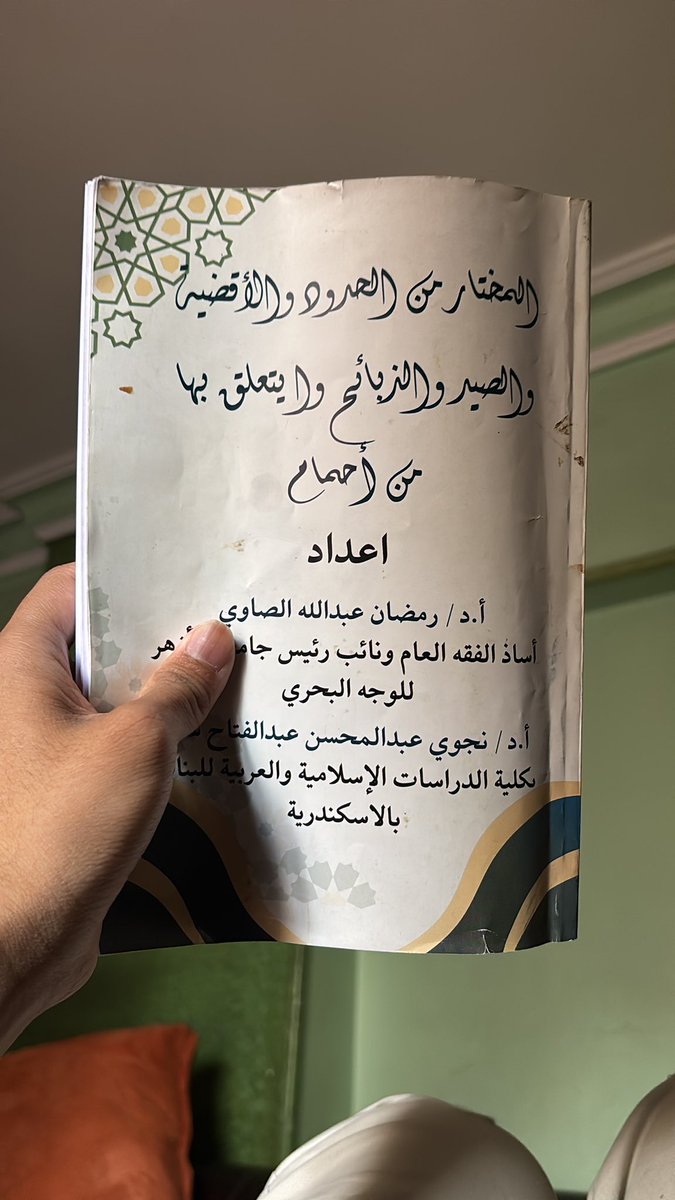 المختار من الحدود والأقضية
والصيد والذبائح وا يتعلق بها
من أحمام
اعداد
أ.د / رمضان عبدالله الصاوي
أساذ الفقه العام ونائب رئيس
للوجه البحري
أ.د / نجوي عبدالمحسن عبدالفتاح
بكلية الدراسات الإسلامية والعربية
بالاسكندرية